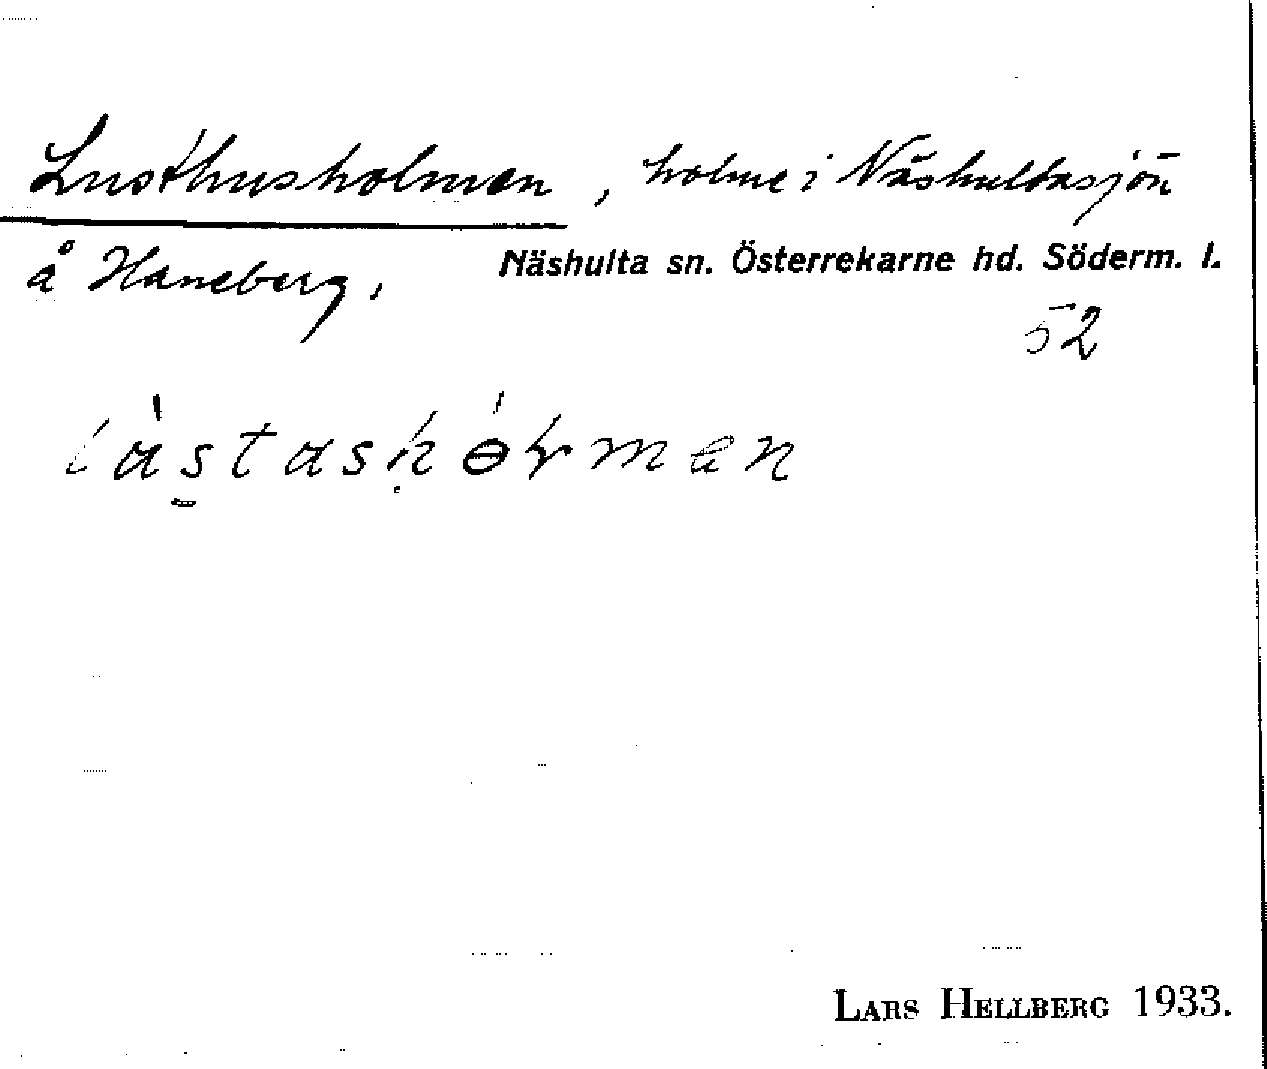 Lusthusholmen, holme i Näshultasjön
å Haneberg, Näshulta sn. Österrekarne hd. Söderm. l.
52
LARS HELLBERG 1933.